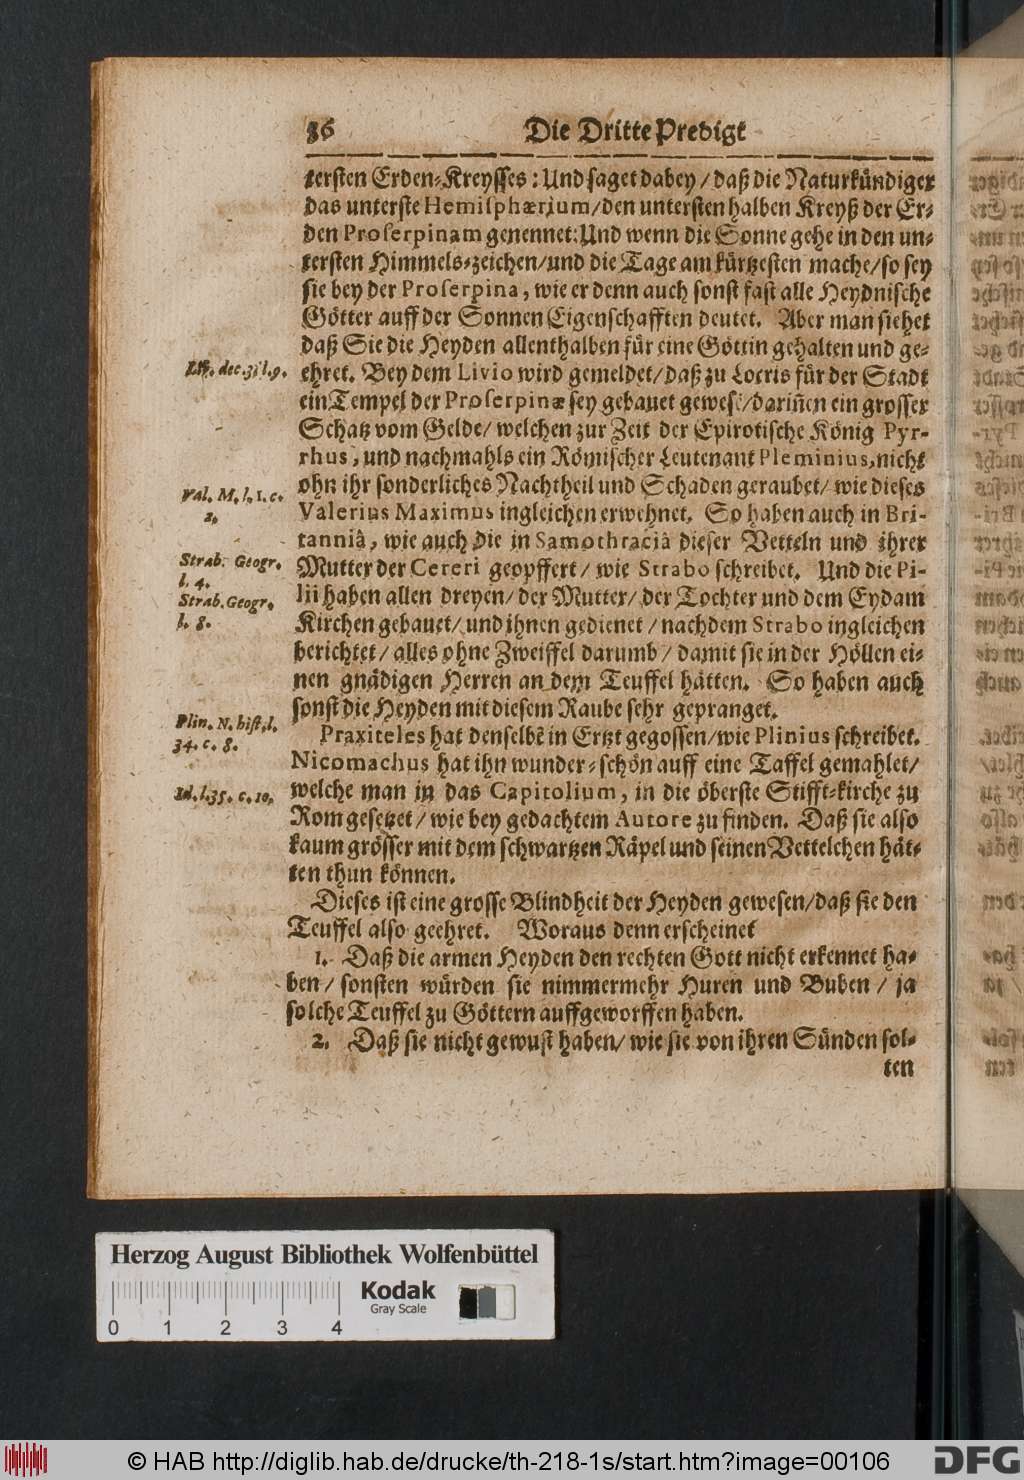 86 Die Dritte Predigt
tersten Erden-Kreysses: Und saget dabey/ daß die Naturkündiger
das unterste Hemisphærium/ den untersten halben Kreyß der Er-
den Proserpinam genennet: Und wenn die Sonne gehe in den un-
tersten Himmels-zeichen/ und die Tage am kürtzesten mache/ so sey
sie bey der Proserpina, wie er denn auch sonst fast alle Heydnische
Götter auff der Sonnen Eigenschafften deutet. Aber man siehet
daß Sie die Heyden allenthalben für eine Göttin gehalten und ge-
Liv. dec. 3. l. 9.
ehret. Bey dem Livio wird gemeldet/ daß zu Locris für der Stadt
ein Tempel der Proserpinæ sey gebauet gewest/ dariñen ein grosser
Schatz vom Gelde/ welchen zur Zeit der Epirotische König Pyr-
rhus, und nachmahls ein Römischer Leutenant Pleminius, nicht
Val. M. l. 1. c.
2.
ohn ihr sonderliches Nachtheil und Schaden geraubet/ wie dieses
Valerius Maximus ingleichen erwehnet. So haben auch in Bri-
tanniâ, wie auch die in Samothraciâ dieser Vetteln und ihrer
Strab. Geogr.
l. 4.
Mutter der Cereri geopffert/ wie Strabo schreibet. Und die Pi-
Strab. Geogr.
l. 8.
lii haben allen dreyen/ der Mutter/ der Tochter und dem Eydam
Kirchen gebauet/ und ihnen gedienet/ nachdem Strabo ingleichen
berichtet/ alles ohne Zweiffel darumb/ damit sie in der Höllen ei-
nen gnädigen Herren an dem Teuffel hätten. So haben auch
sonst die Heyden mit diesem Raube sehr gepranget.
Plin. N. hist. l.
34. c. 8.
Praxiteles hat denselbẽ in Ertzt gegossen/ wie Plinius schreibet.
Nicomachus hat ihn wunder-schön auff eine Taffel gemahlet/
Id. l. 35. c. 10.
welche man in das Capitolium, in die öberste Stifft-kirche zu
Rom gesetzet/ wie bey gedachtem Autore zu finden. Daß sie also
kaum grösser mit dem schwartzen Räpel und seinen Vettelchen hät-
ten thun können.
Dieses ist eine grosse Blindheit der Heyden gewesen/ daß sie den
Teuffel also geehret. Woraus denn erscheinet
1. Daß die armen Heyden den rechten Gott nicht erkennet ha-
ben/ sonsten würden sie nimmermehr Huren und Buben/ ja
solche Teuffel zu Göttern auffgeworffen haben.
2. Daß sie nicht gewust haben/ wie sie von ihren Sünden sol-
ten
Herzog August Bibliothek Wolfenbüttel
Kodak
Gray Scale
0 1 2 3 4
© HAB http://diglib.hab.de/drucke/th-218-1s/start.htm?image=00106
DFG